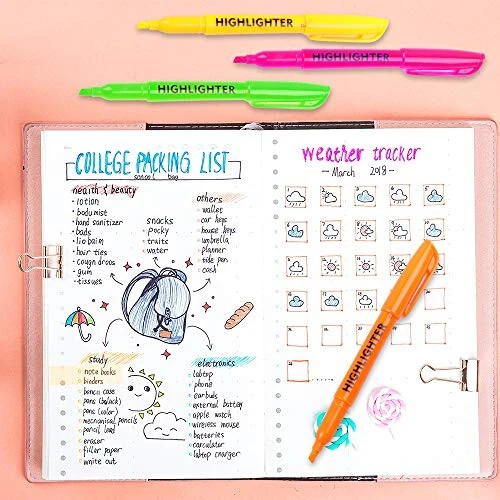 HIGHLIGHTER
HIGHLIGHTER
HIGHLIGHTER
COLLEGE PACKING LIST
school bag
health & beauty
lotion
bodymist
hand sanitizer
pads
lip balm
hair ties
cough drops
gum
tissues
snacks
pocky
fruits
water
others
wallet
car keys
house keys
umbrella
planner
tide pen
cash
study
note books
binders
pencil case
pens (black)
pens (color)
mechanical pencils
pencil lead
eraser
filler paper
white out
electronics
laptop
phone
earbuds
external battery
apple watch
wireless mouse
batteries
carculator
labtop charger
weather tracker
March 2018
HIGHLIGHTER